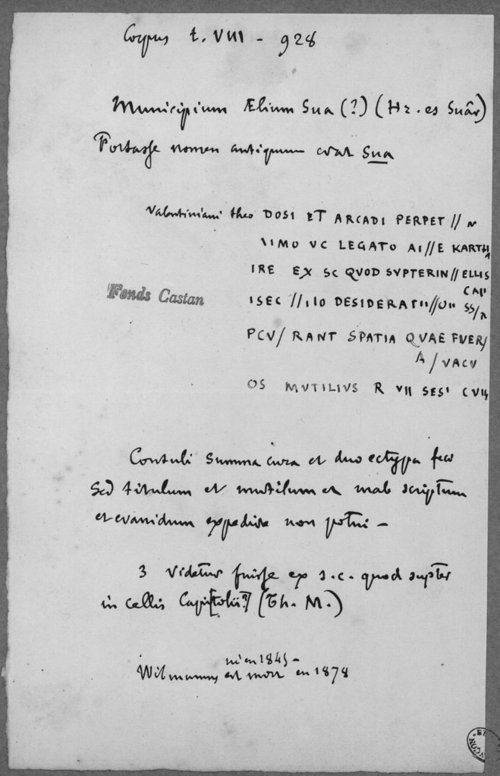 Corpus t. VIII - 928
Municipium Ælium Sua (?) (Hr. es Suâr)
Fortasse nomen antiquum erat Sua
Valentiniani theo DOSI ET ARCADI PERPET // N
\IMO VC LEGATO AI//E KARTHA
IRE EX SC QUOD SVPTERIN//ELLIS
CAPI
Fonds Castan
ISEC //IIO DESIDERATII//OII SS/A
PCV/ RANT SPATIA QVAE FVER/
A/VACV
OS MVTILIVS R VII SESI CVII
Contuli summa cura et duo ectypa feci
Sed titulum et mutilum et male scriptum
et evanidum expedire non potui -
3 Videtur fuisse ex s.c. quod supter
in cellis Capi[tolii?] (Th. M.)
né en 1845 -
Wilmanns est mort en 1878